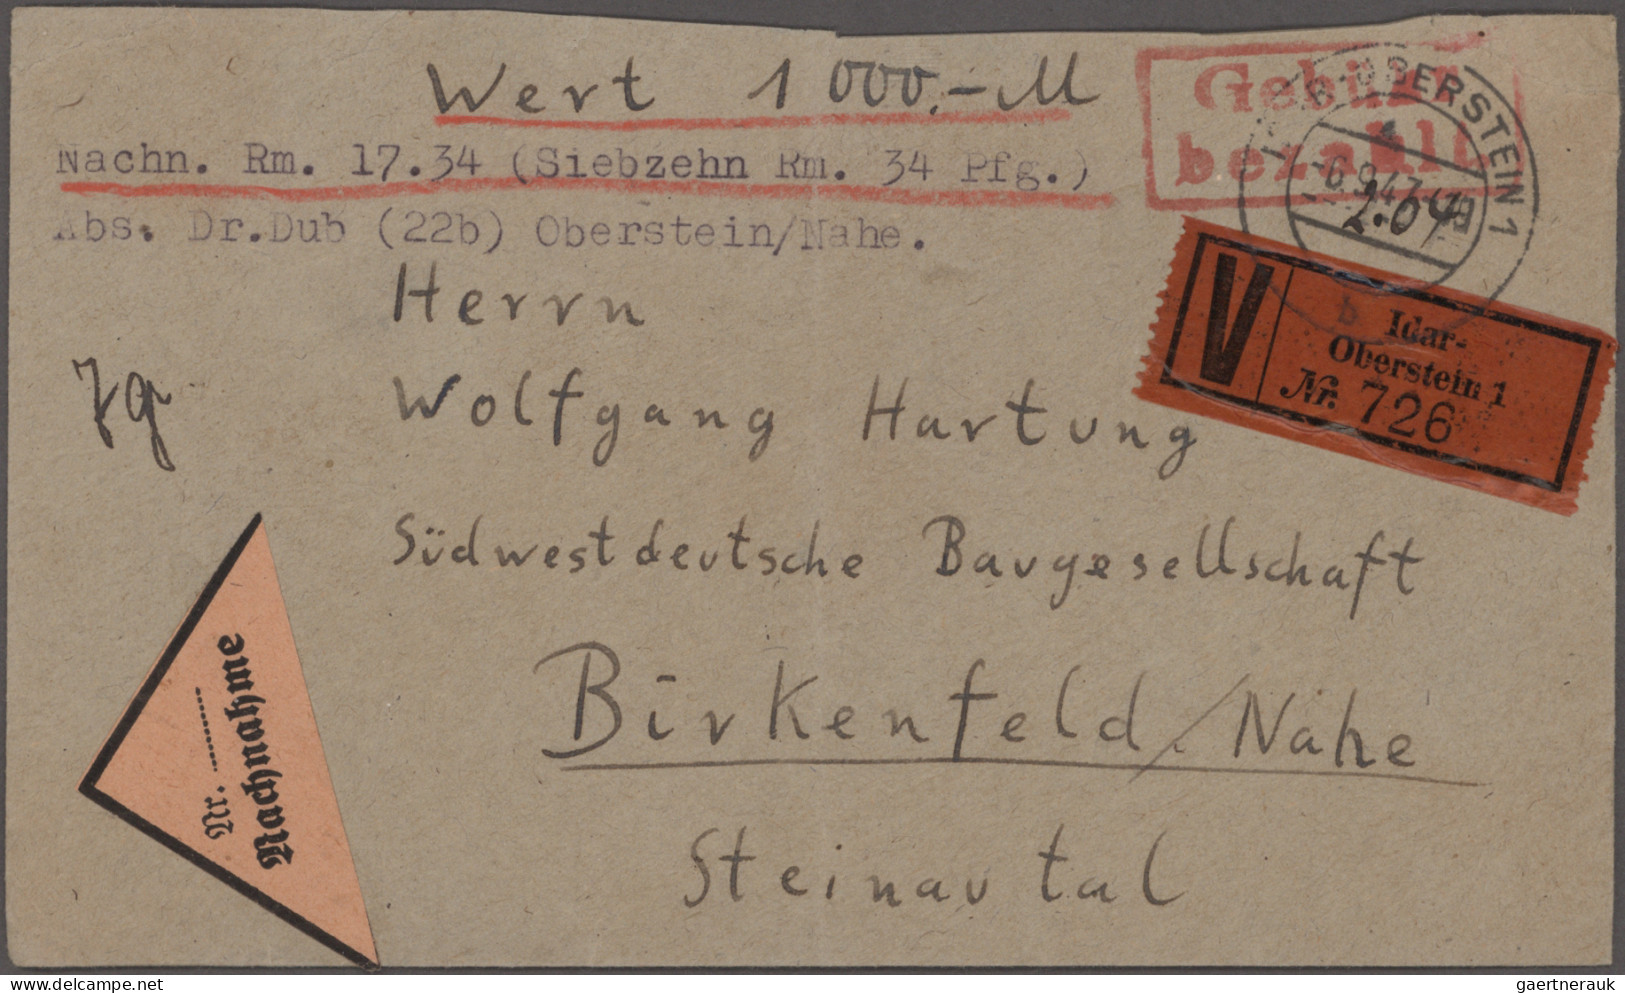 Wert 1000.- M
Nachn. Rm. 17.34 (Siebzehn Rm. 34 Pfg.)
Abs. Dr.Dub (22b) Oberstein/Nahe.
Gebühr
bezahlt
IDAR-OBERSTEIN 1
-6.9.47
2.04
b
V
Idar-
Oberstein 1
Nr. 726
Herrn
Wolfgang Hartung
Südwestdeutsche Baugesellschaft
Birkenfeld/Nahe
Steinautal
Nr.
Nachnahme
delcampe.net
gaertnerauk